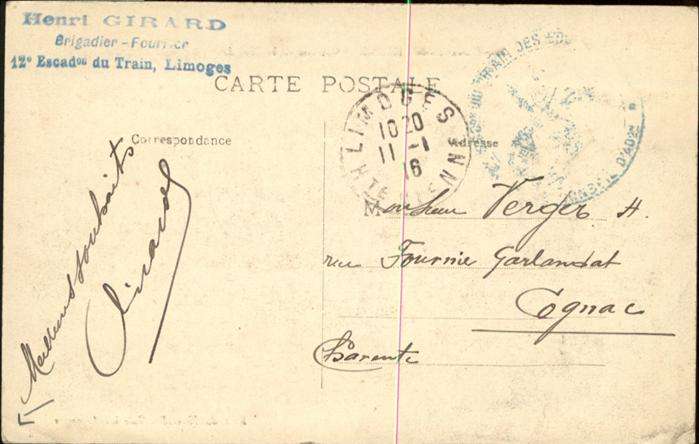 Henri GIRARD
Brigadier-Fourrier
12e Escadon du Train, Limoges
CARTE POSTALE
Correspondance
Adresse
LIMOGES
1020
11 -1
16
Hte VIENNE
TRAIN DES
Meilleurs souhaits
Girard
Monsieur Verger H.
rue Fournie Garlandat
Cognac
Charente